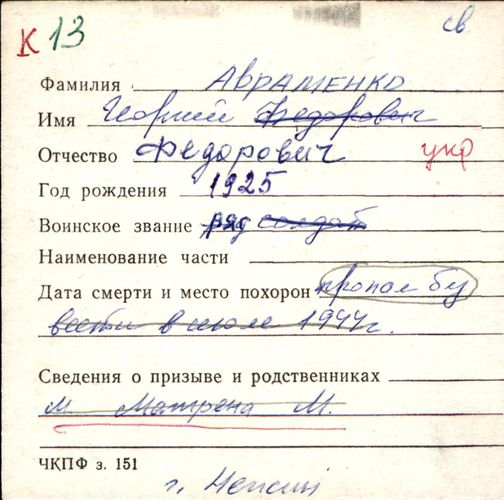 К 13
св
Фамилия АВРАМЕНКО
Имя Георгий Федорович
Отчество Федорович укр
Год рождения 1925
Воинское звание ряд солдат
Наименование части
Дата смерти и место похорон пропал бу
вести в июле 1944г.
Сведения о призыве и родственниках
М Матрена М.
ЧКПФ з. 151
г.